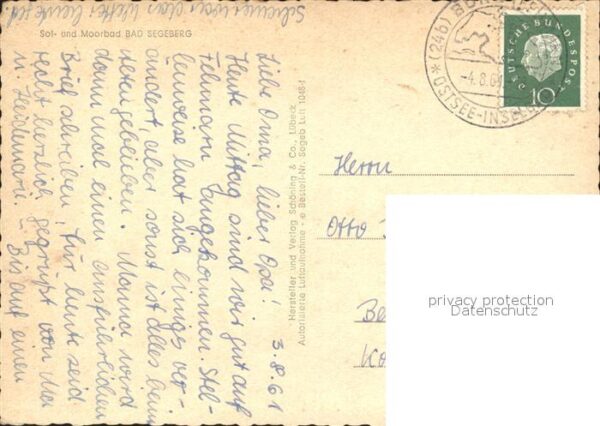 Sol- und Moorbad BAD SEGEBERG
3.8.61
Liebe Oma, lieber Opa!
Heute Mittag sind wir gut auf
Fehmarn eingekommen. Stel-
lenweise hat sich einiges ver-
ändert, aber sonst ist alles beim
alten geblieben. Mama wird
dann mal einen ausführlichen
Brief schreiben, für heute seid
recht herzlich gegrüßt von Ma
u. Heidemarie. Bis auf einen
Schauer war das Wetter heute
Hersteller und Verlag Schöning & Co., Lübeck
Autorisierte Luftaufnahme - Bestell-Nr. Segeb Luft 1048-1
(24b) BURG
-4.8.61
OSTSEE-INSEL
DEUTSCHE BUNDESPOST
10
Herrn
Otto
Be
Ko
privacy protection
Datenschutz